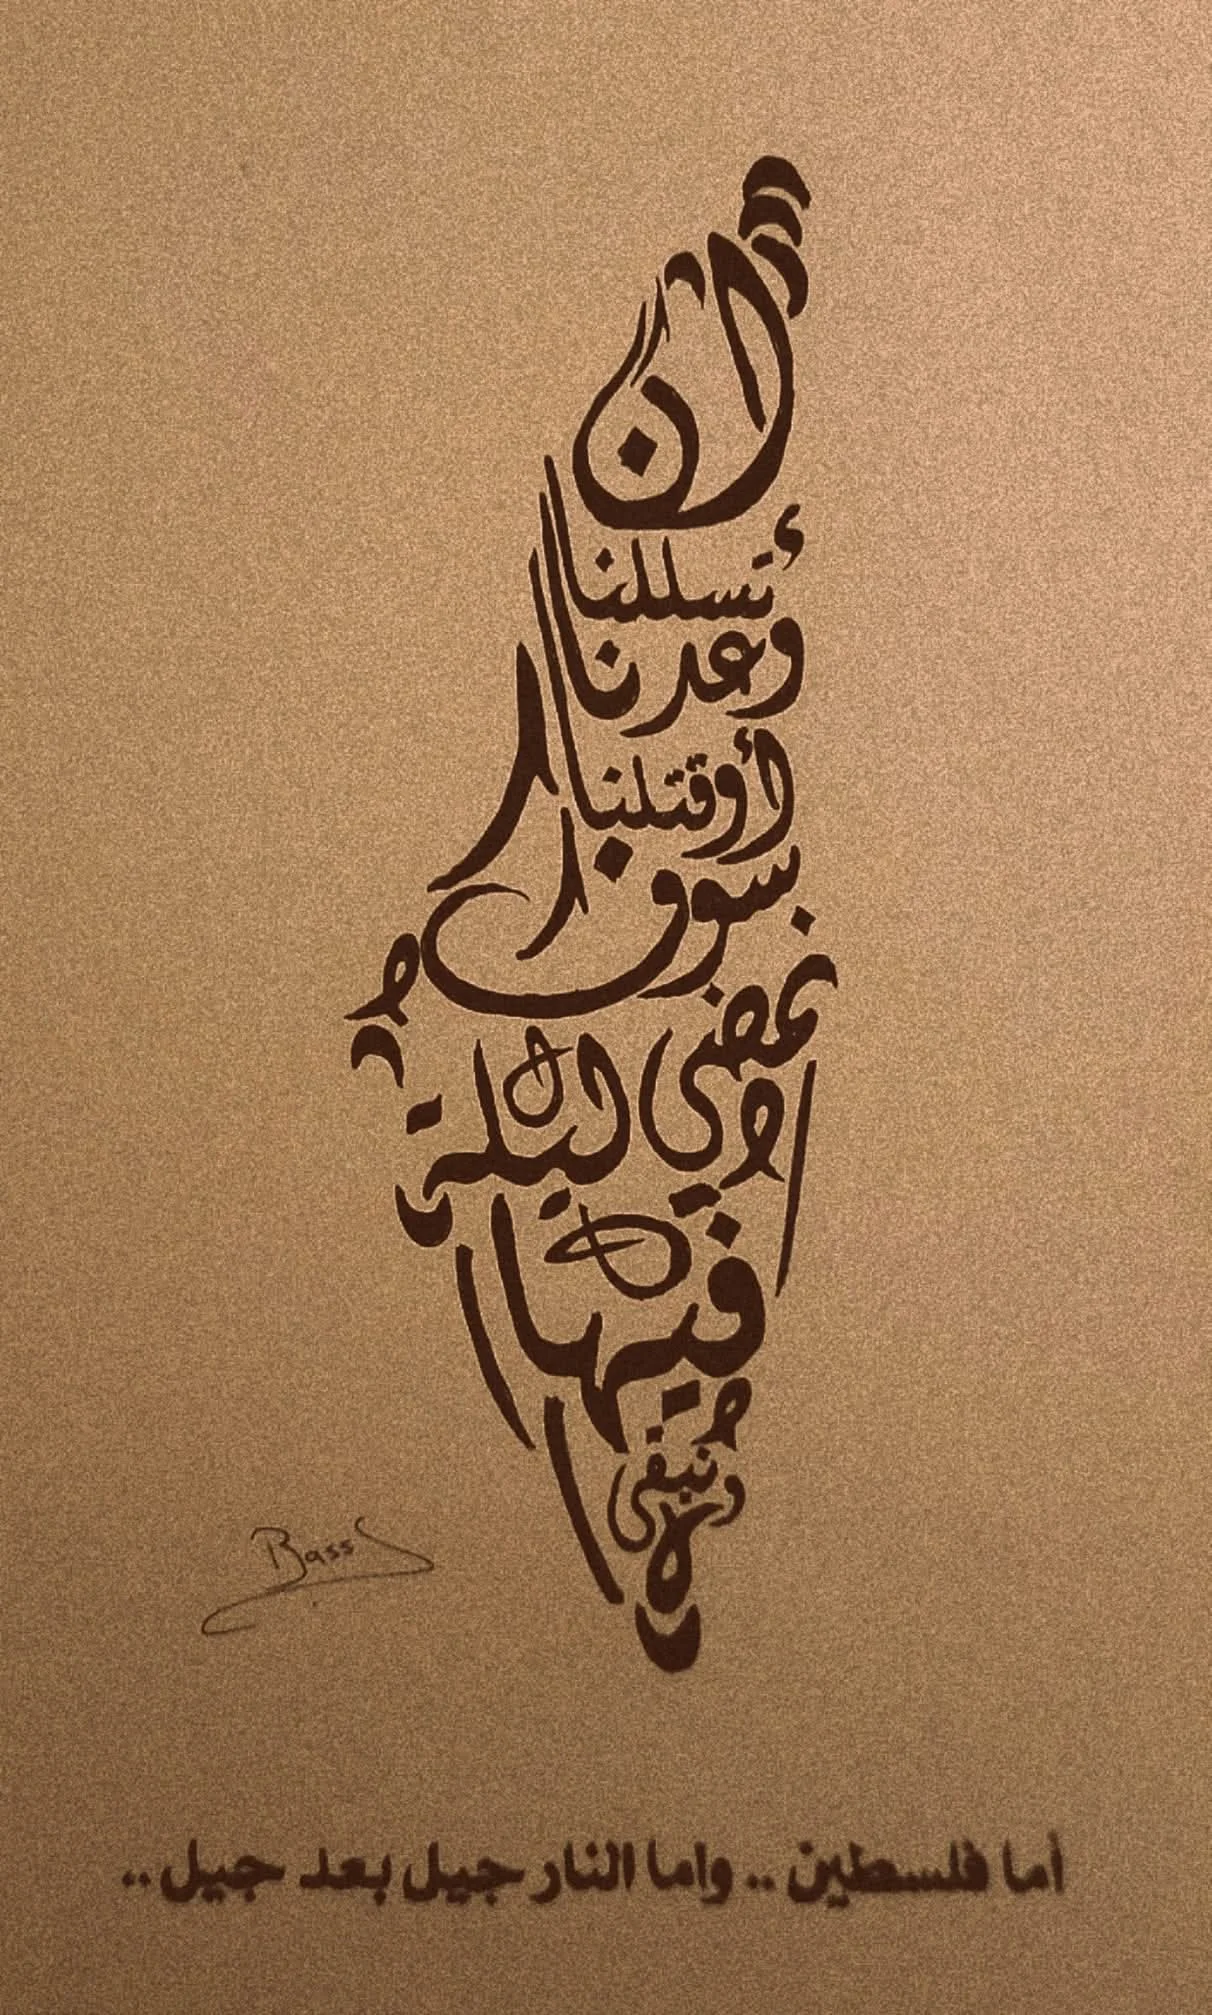 ان
تسللنا
وعدنا
أو قتلنا
سوف
نمضي
ليلة
فيها
ونبقى
Bass
أما فلسطين .. واما النار جيل بعد جيل ..